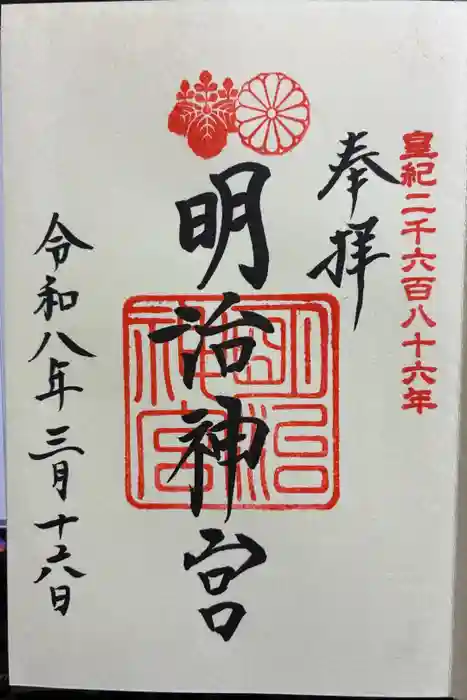 皇紀二千六百八十六年
奉拝
明治神宮
明治
神宮
令和八年三月十六日